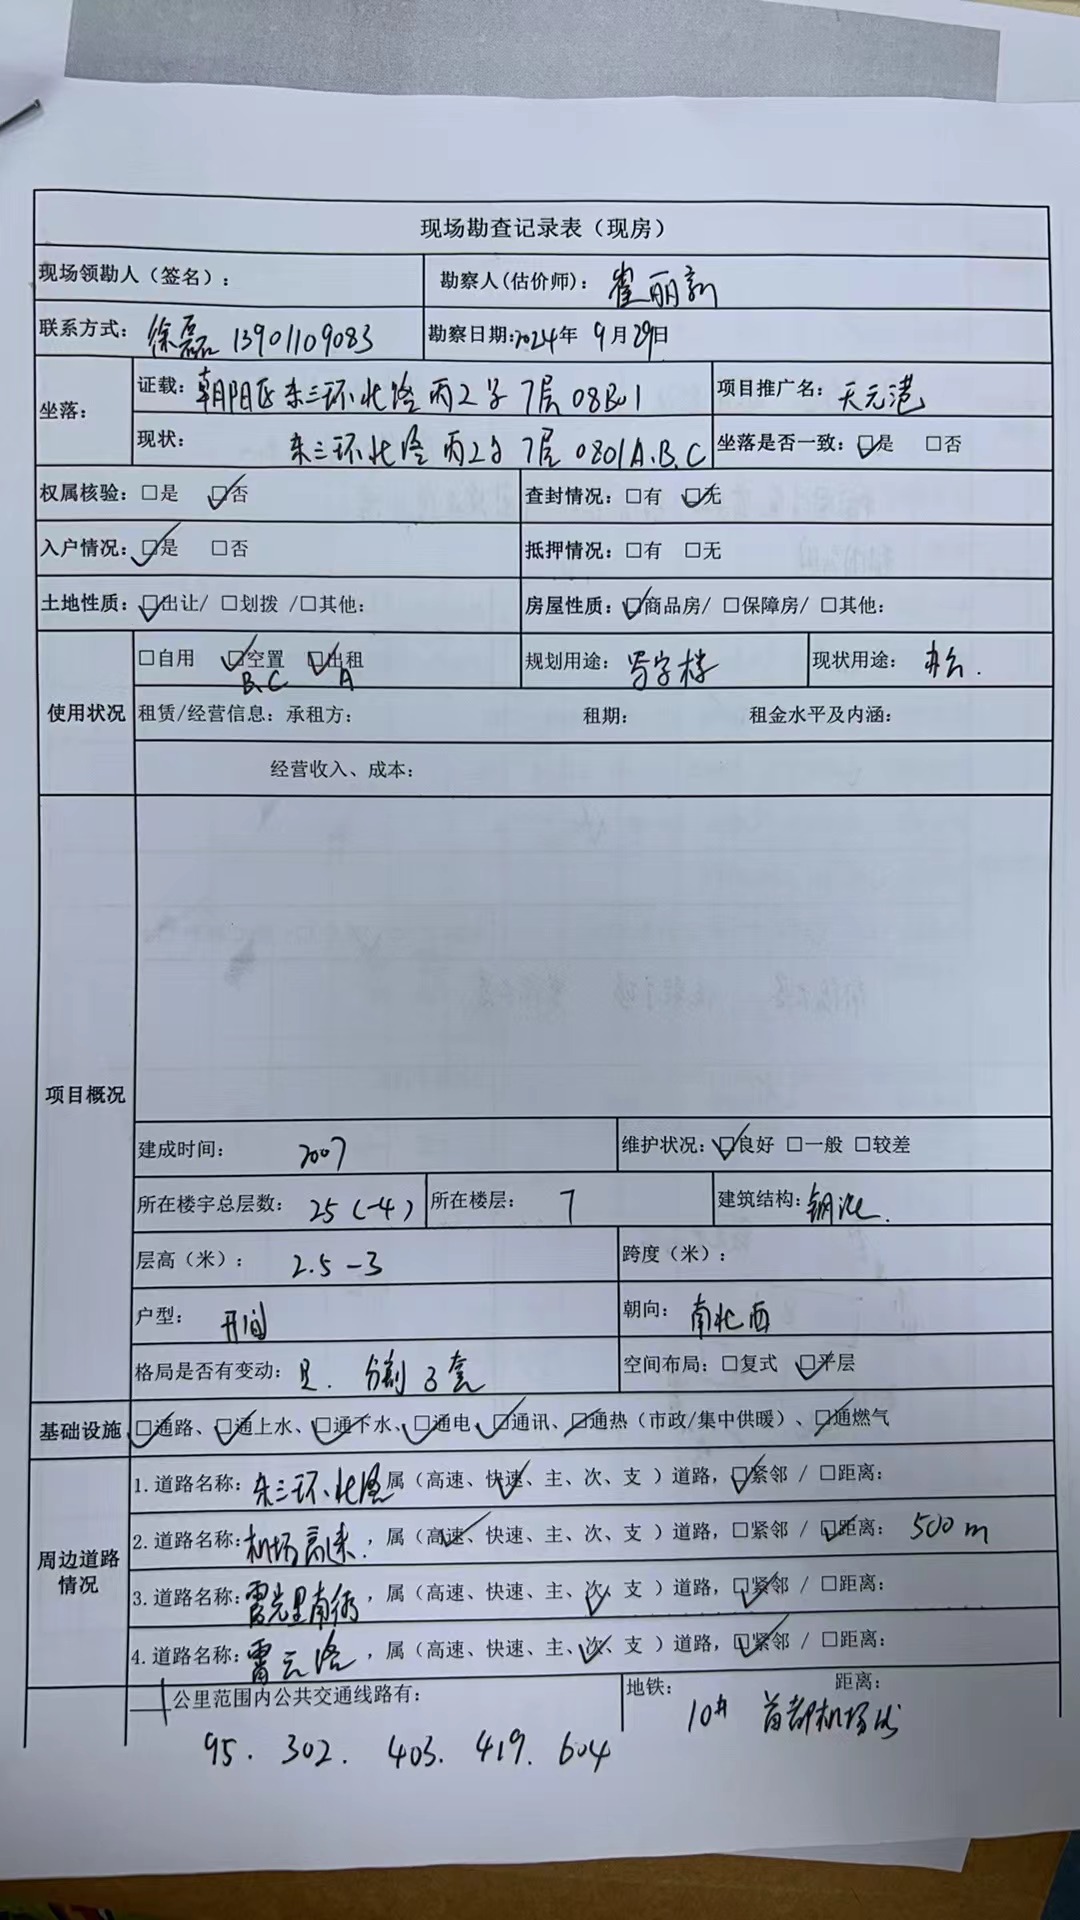 现场勘查记录表（现房）
现场领勘人（签名）：
勘察人(估价师)：崔丽新
联系方式：徐磊 13901109083
勘察日期:2024年 9月29日
坐落：
证载：朝阳区东三环北路丙2号7层08B01
项目推广名：天元港
现状：东三环北路丙2号7层0801A.B.C
坐落是否一致：☑是 □否
权属核验：□是 ☑否
查封情况：□有 ☑无
入户情况：☑是 □否
抵押情况：□有 □无
土地性质：☑出让/ □划拨 /□其他:
房屋性质：☑商品房/ □保障房/ □其他:
使用状况
□自用 ☑空置 ☑出租
B.C A
规划用途：写字楼
现状用途：办公.
租赁/经营信息：承租方： 租期： 租金水平及内涵：
经营收入、成本：
项目概况
建成时间：2007
维护状况：☑良好 □一般 □较差
所在楼宇总层数：25(-4)
所在楼层：7
建筑结构：钢混.
层高（米）：2.5-3
跨度（米）：
户型：开间
朝向：南北西
格局是否有变动：是. 分割3套
空间布局：□复式 ☑平层
基础设施
☑通路、☑通上水、☑通下水、☑通电、☑通讯、☑通热（市政/集中供暖）、☑通燃气
周边道路情况
1.道路名称：东三环北路属（高速、快速、主、次、支 ）道路，☑紧邻 / □距离：
2.道路名称：机场高速，属（高速、快速、主、次、支 ）道路，□紧邻 / ☑距离：500m
3.道路名称：霞光里南街，属（高速、快速、主、次、支 ）道路，☑紧邻 / □距离：
4.道路名称：霄云路，属（高速、快速、主、次、支 ）道路，☑紧邻 / □距离：
公里范围内公共交通线路有：
地铁： 距离：
10# 首都机场线
95. 302. 403. 419. 604